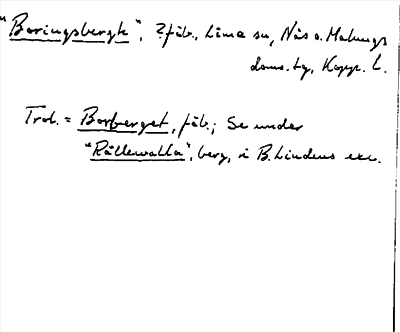 "Boringsbergh", ? fäb., Lima sn, Nås o. Malungs
doms. tg, Kopp. L.
Trol. = Borberget, fäb.; Se under
"Rällewalla", berg, i B. Lindens exc.